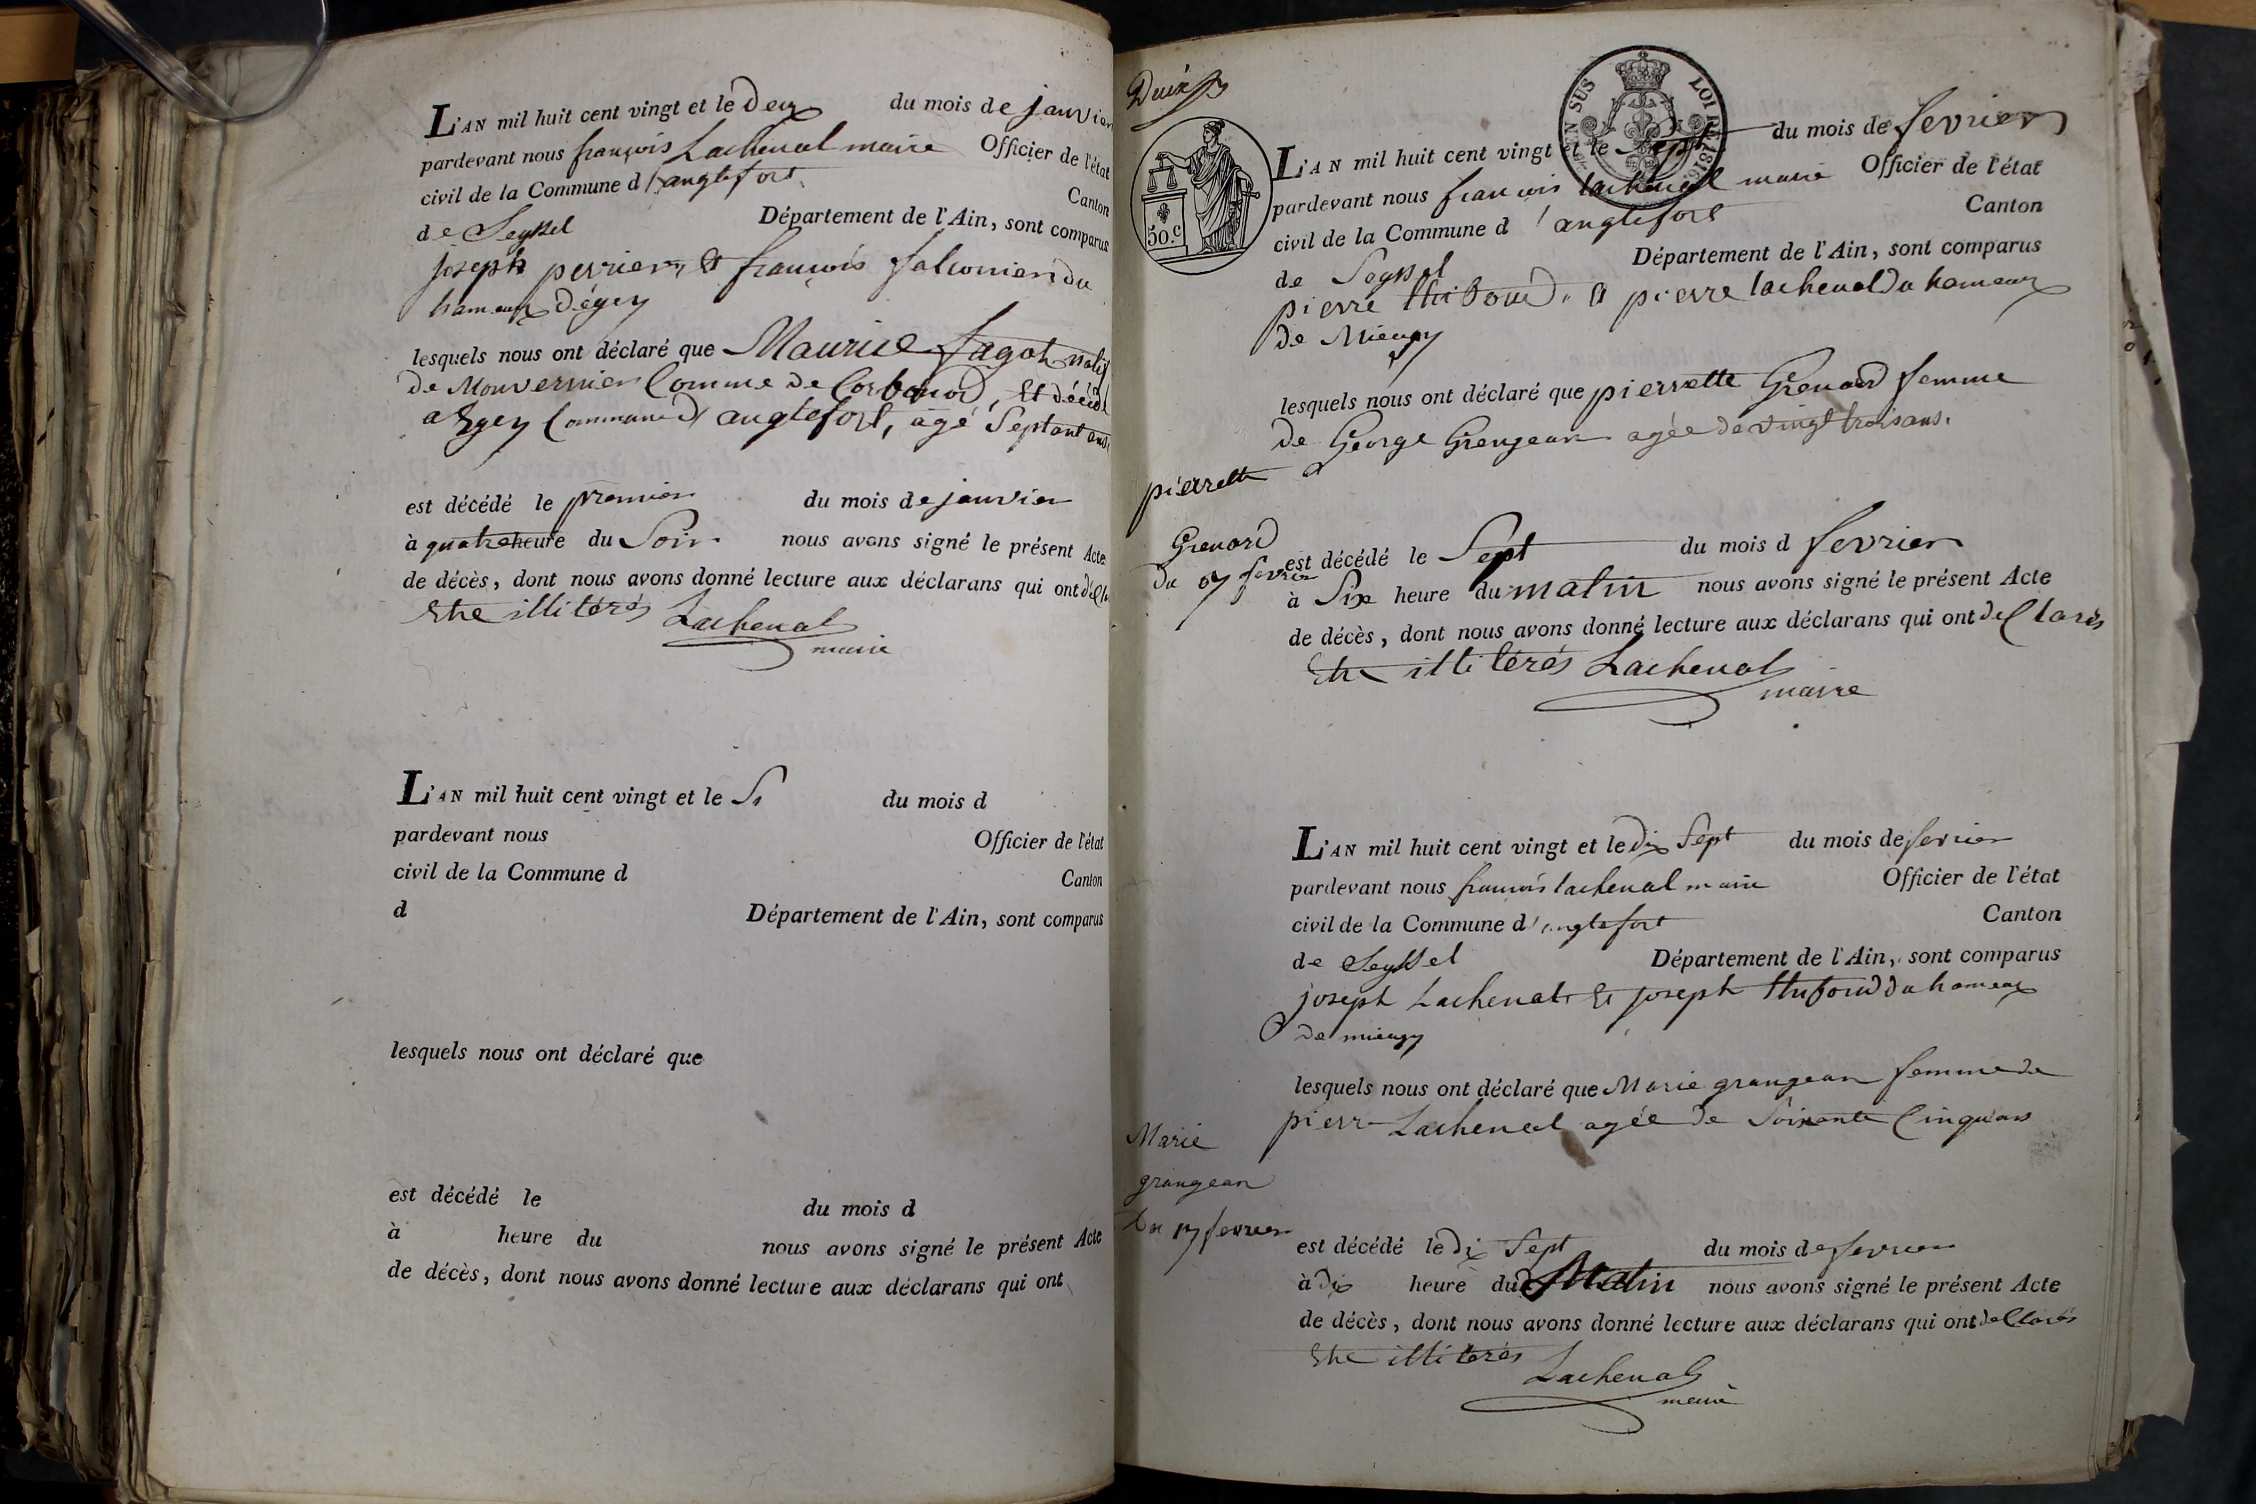 L'AN mil huit cent vingt et le deux du mois de janvier
pardevant nous françois Lachenal maire Officier de l'état
civil de la Commune d'anglefort Canton
de Seyssel Département de l'Ain, sont comparus
joseph perrier, et françois falconier du
hameaux d'égey
lesquels nous ont déclaré que Maurice fagot natif
de Comme de Corbonod, Et décédé
a Egey Commune d'anglefort, agé Septant ans
est décédé le premier du mois de janvier
à quatre heure du Soir nous avons signé le présent Acte
de décès, dont nous avons donné lecture aux déclarans qui ont
Etre illitérés Lachenal
maire
L'AN mil huit cent vingt et le S du mois d
pardevant nous Officier de l'état
civil de la Commune d Canton
d Département de l'Ain, sont comparus
lesquels nous ont déclaré que
est décédé le du mois d
à heure du nous avons signé le présent Acte
de décès, dont nous avons donné lecture aux déclarans qui ont
EN SUS LOI DE 1816
50.c
L'AN mil huit cent vingt et le Sept du mois de fevrier
pardevant nous francois lachenal maire Officier de l'état
civil de la Commune d'anglefort Canton
de Seyssel Département de l'Ain, sont comparus
pierre thiboud, et pierre lachenal du hameaux
de Mieugy
lesquels nous ont déclaré que pierrette Grenard femme
de George Grenjean agée de vingt trois ans.
pierrette
Grenard
du 07 fevrier
est décédé le Sept du mois d fevrier
à Six heure du matin nous avons signé le présent Acte
de décès, dont nous avons donné lecture aux déclarans qui ont declarés
Etre illitérés Lachenal
maire
L'AN mil huit cent vingt et le dix Sept du mois de fevrier
pardevant nous francois lachenal maire Officier de l'état
civil de la Commune d'anglefort Canton
de Seyssel Département de l'Ain, sont comparus
joseph Lachenal Et joseph du hameaux
de mieugy
lesquels nous ont déclaré que Marie grangean femme de
pierre Lachenal agée de Soixante Cinq ans
Marie
grangean
Du 17 fevrier
est décédé le dix Sept du mois de fevrier
à dix heure du Matin nous avons signé le présent Acte
de décès, dont nous avons donné lecture aux déclarans qui ont declarés
Etre illiterés
Lachenal
maire